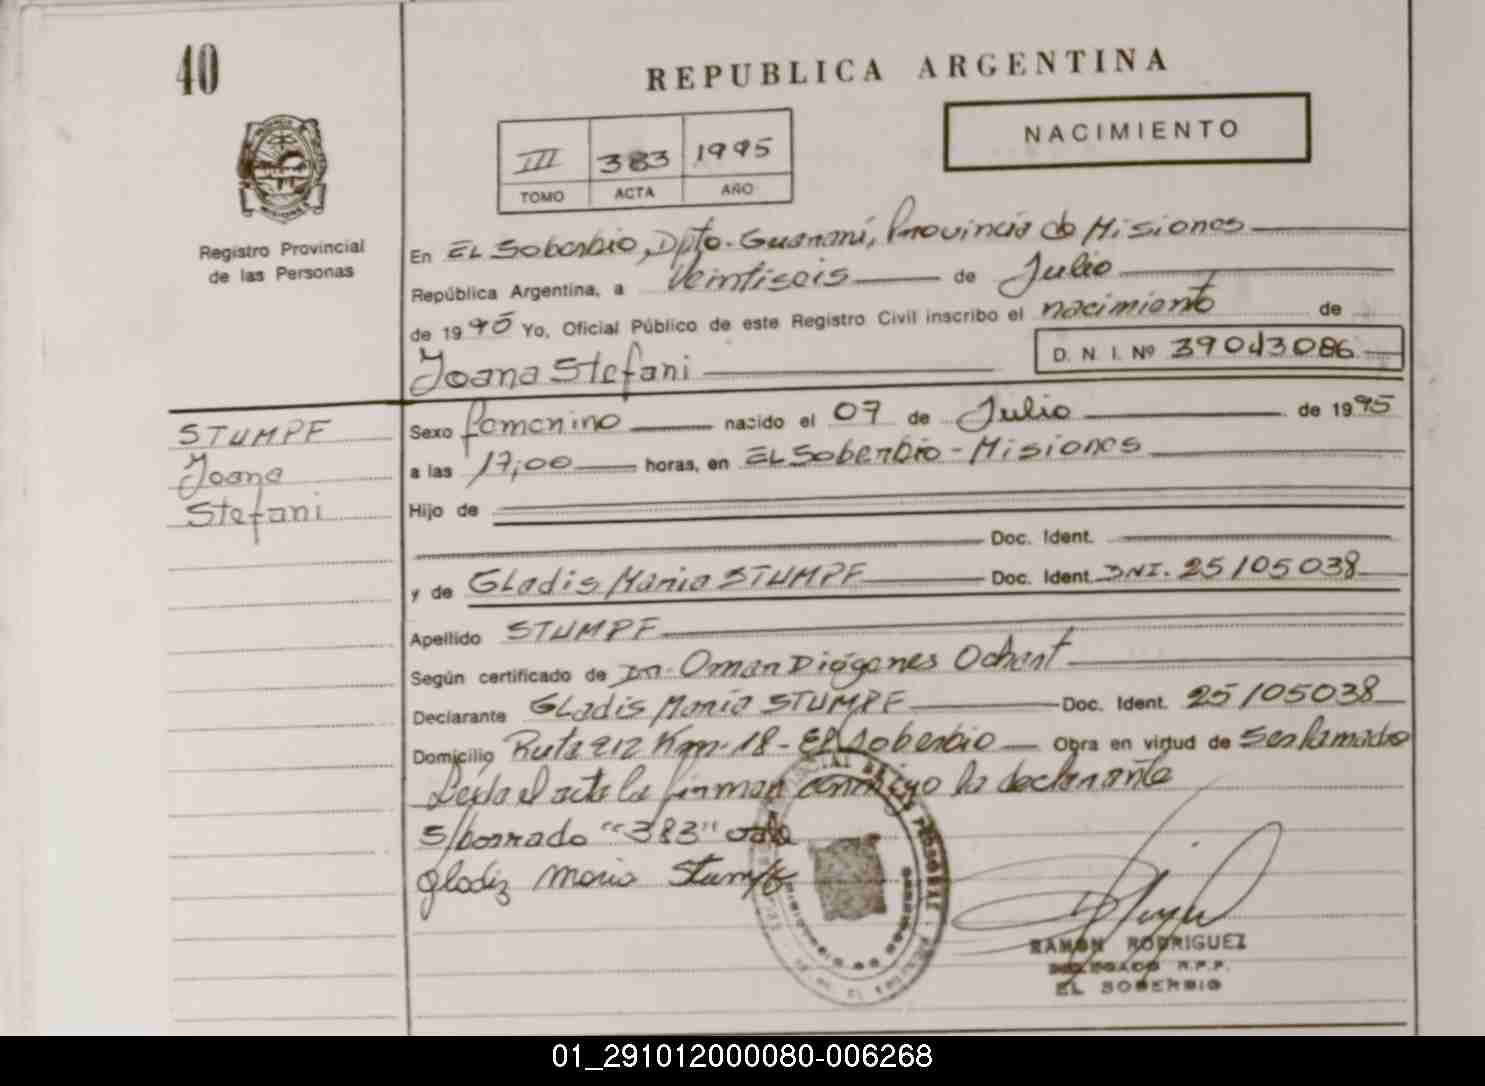 40
REPUBLICA ARGENTINA
NACIMIENTO
III 383 1995
TOMO ACTA AÑO
MISIONES
Registro Provincial
de las Personas
En EL Soberbio, Dpto. Guaraní, Provincia de Misiones
República Argentina, a Veintiseis de Julio
de 1995 Yo, Oficial Público de este Registro Civil inscribo el nacimiento de
Joana Stefani D. N. I. Nº 39043086
STUMPF
Joana
Stefani
Sexo femenino nacido el 07 de Julio de 1995
a las 17,00 horas, en EL Soberbio - Misiones
Hijo de
Doc. Ident.
y de Gladis Maria STUMPF Doc. Ident. DNI. 25105038
Apellido STUMPF
Según certificado de Dr. Omar Diógenes
Declarante Gladis María STUMPF Doc. Ident. 25105038
Domicilio Ruta 212 Km-18- El Soberbio Obra en virtud de Ser la madre
Leida el acta la firman conmigo la declarante
S/borrado "383" vale
gladiz Maria Stumpf
RAMON RODRIGUEZ
DELEGADO R.P.P.
EL SOBERBIO
01_291012000080-006268